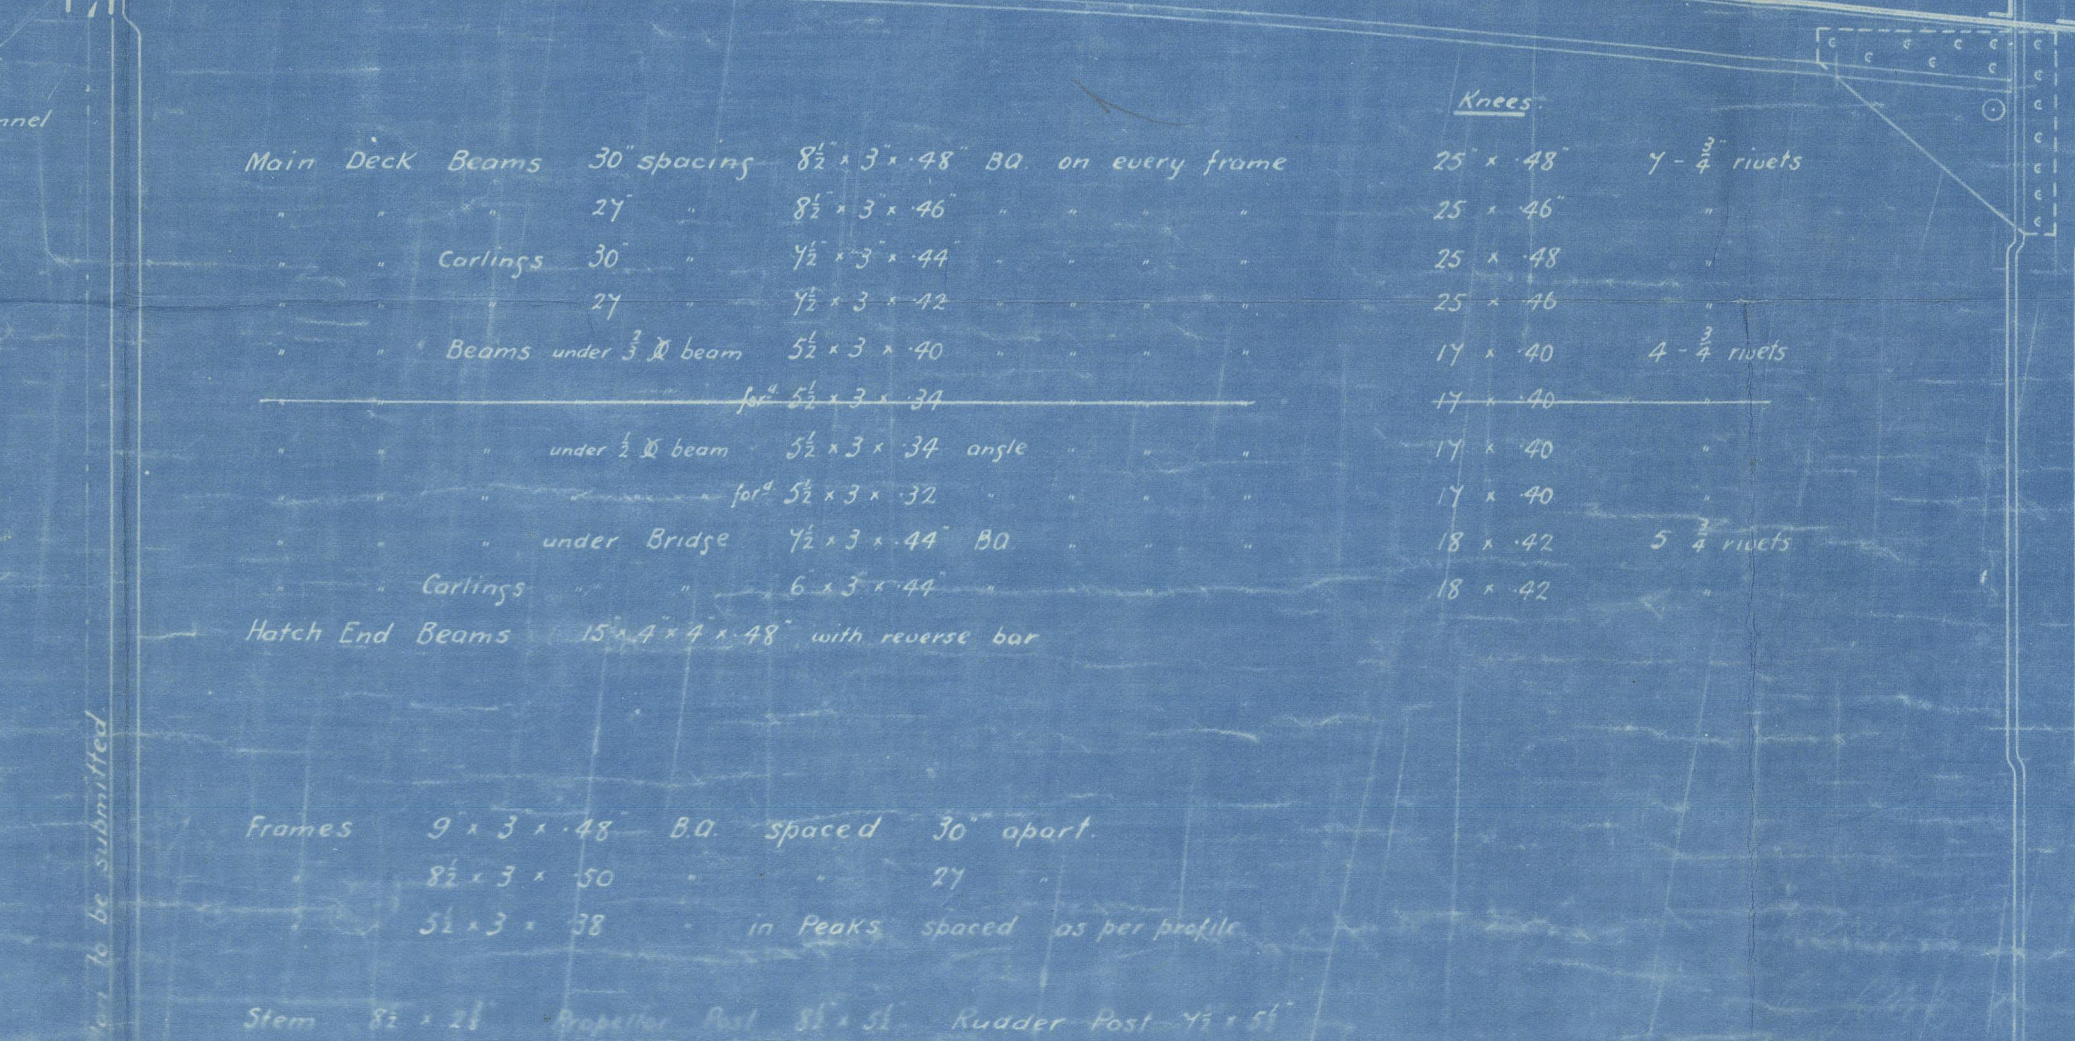 nnel
Knees.
Main Deck Beams 30" spacing 8½" × 3" × ·48" BA. on every frame 25" × ·48" 7 - ¾" rivets
" " " 27" " 8½ × 3" × ·46" " " " " 25 × ·46" "
" " Carlings 30" " 7½" × 3" × ·44" " " " " 25 × ·48 "
" " " 27 " 7½ × 3 × ·42 " " " " 25 × ·46 "
" " Beams under ⅔ beam 5½ × 3 × ·40 " " " " 17 × ·40 4 - ¾ rivets
forᵈ 5½ × 3 × ·34 " " " " 17 × ·40 "
" " " under ½ beam 5½ × 3 × ·34 angle " " " 17 × ·40 "
" " " " " " forᵈ 5½ × 3 × ·32 " " " " 17 × ·40 "
" " " under Bridge 7½ × 3 × ·44" BA " " " 18 × ·42 5 ¾" rivets
" " Carlings " " 6 × 3 × ·44 " " " " 18 × ·42 "
Hatch End Beams 15" × 4" × 4" × ·48" with reverse bar
to be submitted
Frames 9" × 3" × ·48" B.A. spaced 30" apart.
" 8½ × 3 × ·50 " " 27 "
" 5½ × 3 × ·38 " in Peaks spaced as per profile
Stem Propellor Post Rudder Post